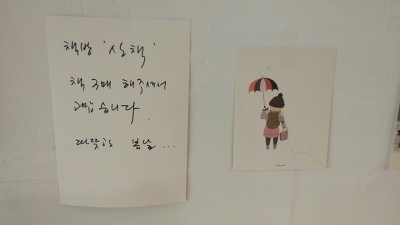 책방 '산책'
책 구매 해주셔서
고맙습니다.
따뜻한 봄날...